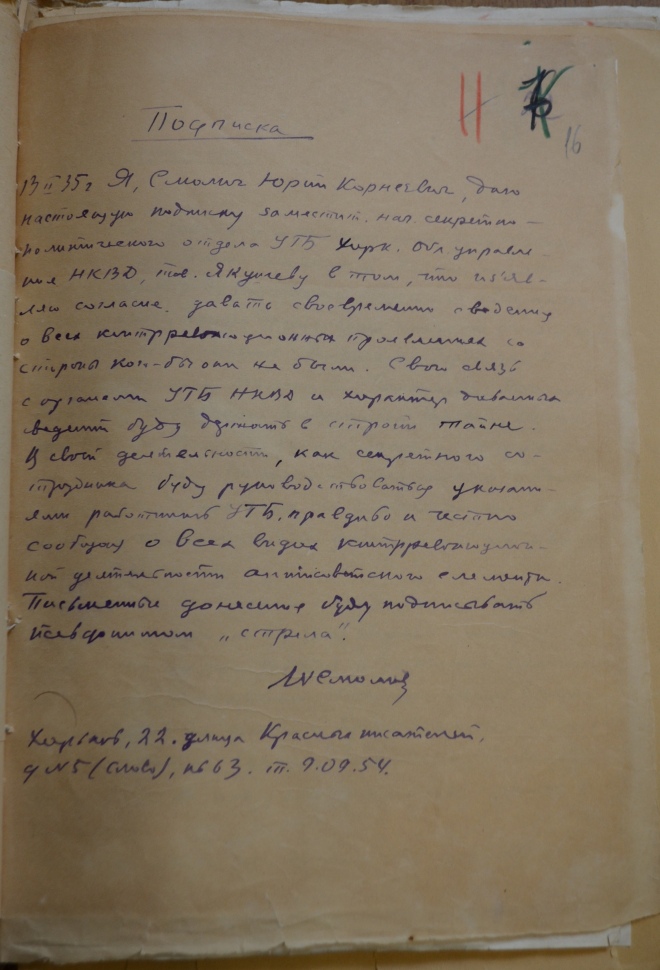 16
Подписка
13 II 35 г Я, Смолич Юрий Корнеевич, даю
настоящую подписку заместит. нач. секретно-
политического отдела УГБ Харк. Обл управле-
ния НКВД, тов. Якушеву в том, что из'яв-
ляю согласие давать своевременно сведения
о всех контрреволюционных проявлениях со
стороны кого-бы они не были. Свою связь
с органами УГБ НКВД и характер даваемых
сведений буду держать в строгой тайне.
В своей деятельности, как секретного со-
трудника буду руководствоваться указани-
ями работников УГБ, правдиво и честно
сообщая о всех видах контрреволюцион-
ной деятельности антисоветского элемента.
Письменные донесения буду подписывать
псевдонимом „стрела".
Смолич
Харьков, 22. улица Красных писателей,
д № 5 (Слово), кв 63. т. 9.09.54.